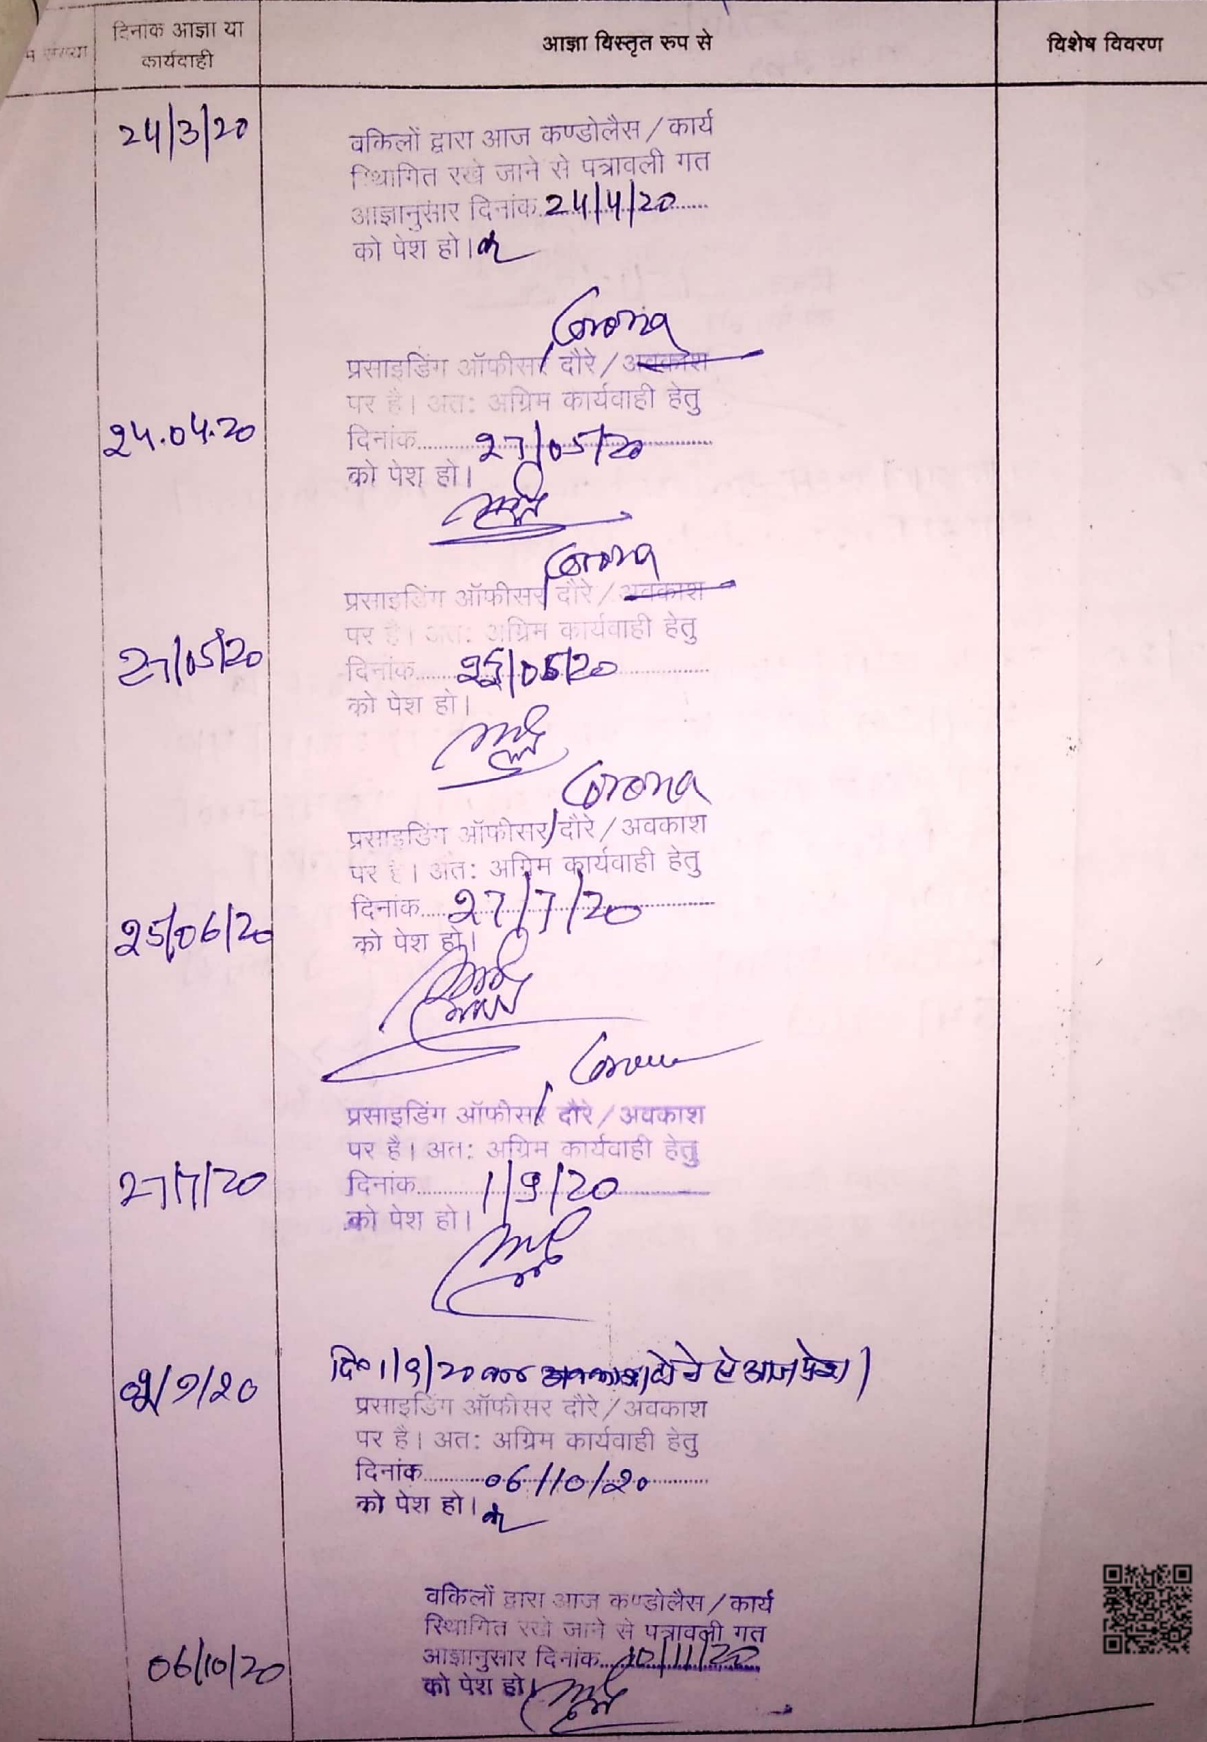 संख्या
दिनांक आज्ञा या
कार्यवाही
आज्ञा विस्तृत रुप से
विशेष विवरण
24/3/20
वकिलों द्वारा आज कण्डोलैस / कार्य
स्थिागित रखे जाने से पत्रावली गत
आज्ञानुसार दिनांक 24/4/20
को पेश हो।
Corona
प्रसाइडिंग ऑफीसर / दौरे / अवकाश
पर है। अत: अग्रिम कार्यवाही हेतु
24.04.20
दिनांक 27/05/20
को पेश हो।
Corona
प्रसाइडिंग ऑफीसर / दौरे / अवकाश
पर है। अत: अग्रिम कार्यवाही हेतु
27/05/20
दिनांक 25/06/20
को पेश हो।
Corona
प्रसाइडिंग ऑफीसर / दौरे / अवकाश
पर है। अत: अग्रिम कार्यवाही हेतु
दिनांक 27/7/20
25/06/20
को पेश हो।
Corona
प्रसाइडिंग ऑफीसर / दौरे / अवकाश
पर है। अत: अग्रिम कार्यवाही हेतु
27/7/20
दिनांक 1/9/20
को पेश हो।
दि० 1/9/20 का अवकाश होने से आज पेश।
/9/20
प्रसाइडिंग ऑफीसर दौरे / अवकाश
पर है। अत: अग्रिम कार्यवाही हेतु
दिनांक 06/10/20
को पेश हो।
वकिलों द्वारा आज कण्डोलैस / कार्य
स्थिागित रखे जाने से पत्रावली गत
06/10/20
आज्ञानुसार दिनांक 10/11/20
को पेश हो।